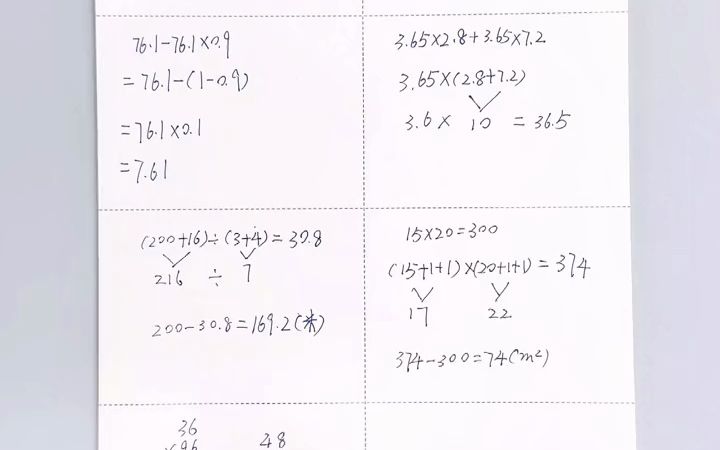 76.1-76.1×0.9
=76.1-(1-0.9)
=76.1×0.1
=7.61
3.65×2.8+3.65×7.2
3.65×(2.8+7.2)
3.6× 10 =36.5
(200+16)÷(3+4)=30.8
216 ÷ 7
200-30.8=169.2(米)
15×20=300
(15+1+1)×(20+1+1)=374
17 22
374-300=74(m²)
36
48